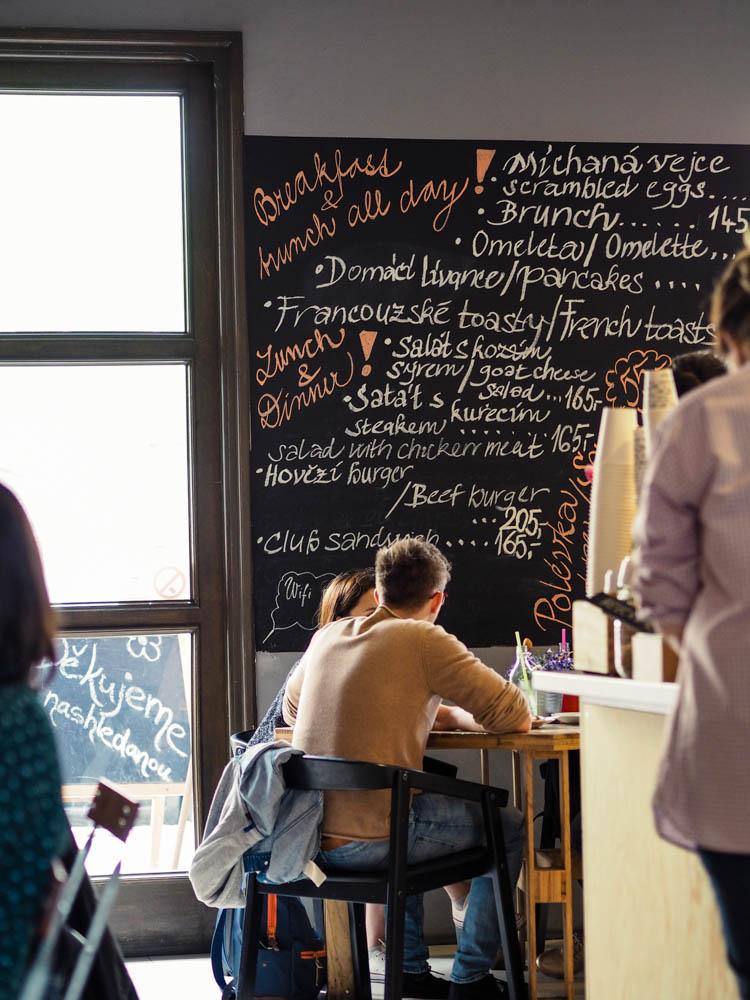 Breakfast
&
brunch all day!
• Míchaná vejce
scrambled eggs....
• Brunch...... 145
• Omeleta/Omelette...
• Domácí lívance/pancakes ....
• Francouzské toasty/French toasts
Lunch
&
Dinner!
• Salát s kozím
sýrem/goat cheese
salad...165,-
• Salát s kuřecím
steakem ........
salad with chicken meat 165,-
• Hovězí burger
/Beef burger
... 205,-
• Club sandwich.... 165,-
Polévka/
Wifi
Děkujeme
nashledanou